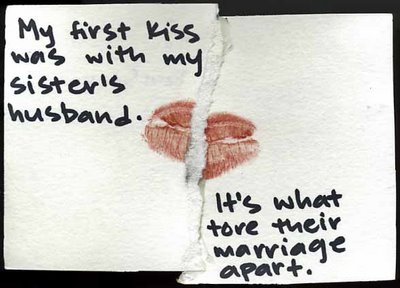 My first kiss
was with my
sister's
husband.
It's what
tore their
marriage
apart.